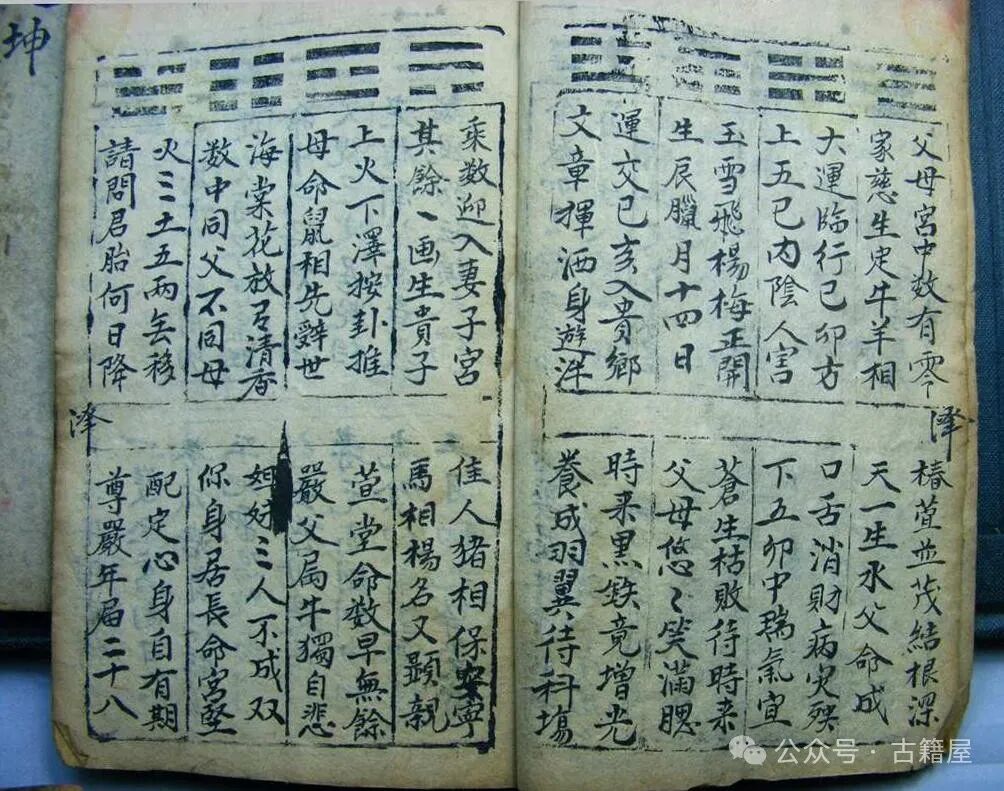 坤
父母宮中数有零
家慈生定牛羊相
大運臨行己卯方
上五巳内陰人害
玉雪飛楊梅正開
生辰臘月十四日
運交己亥入貴鄉
文章揮洒身遊泮
澤
椿萱並茂結根深
天一生水父命成
口舌消財病灾殃
下五卯中瑞氣宜
蒼生枯敗待時来
父母悠〻笑滿腮
時来黑鉄竟增光
養成羽翼待科塲
乘数迎入妻子宮
其餘丶画生貴子
上火下澤按卦推
母命鼠相先辤世
海棠花放有清香
数中同父不同母
火三土五兩無移
請問君胎何日降
澤
佳人猪相保安寧
馬相楊名又顕親
萱堂命数早無餘
嚴父局牛獨自悲
姐妹三人不成双
你身居長命宮堅
配定心身自有期
尊嚴年届二十八
公众号·古籍屋